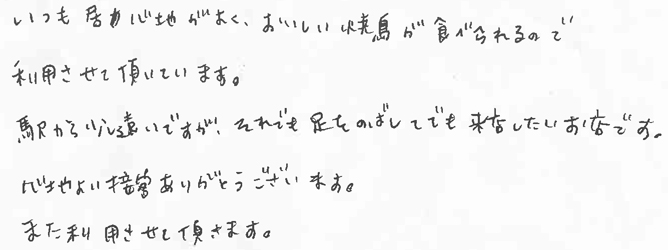 いつも居心地がよく、おいしい焼鳥が食べられるので
利用させて頂いています。
駅から少し遠いですが、それでも足をのばしてでも来店したいお店です。
心地よい接客ありがとうございます。
また利用させて頂きます。